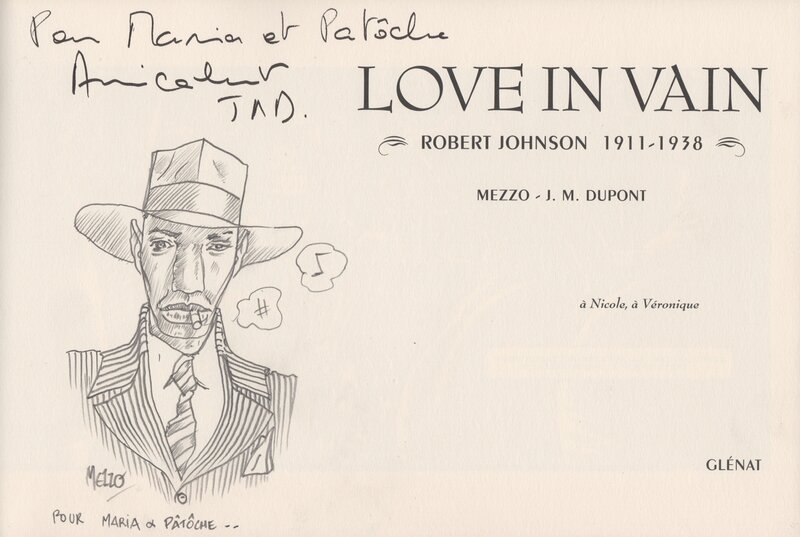 Pour Maria et Patôche
Amicalement
JMD.
LOVE IN VAIN
ROBERT JOHNSON 1911-1938
MEZZO - J. M. DUPONT
à Nicole, à Véronique
#
♪
MEZZO
GLÉNAT
POUR MARIA & PÂTÔCHE --